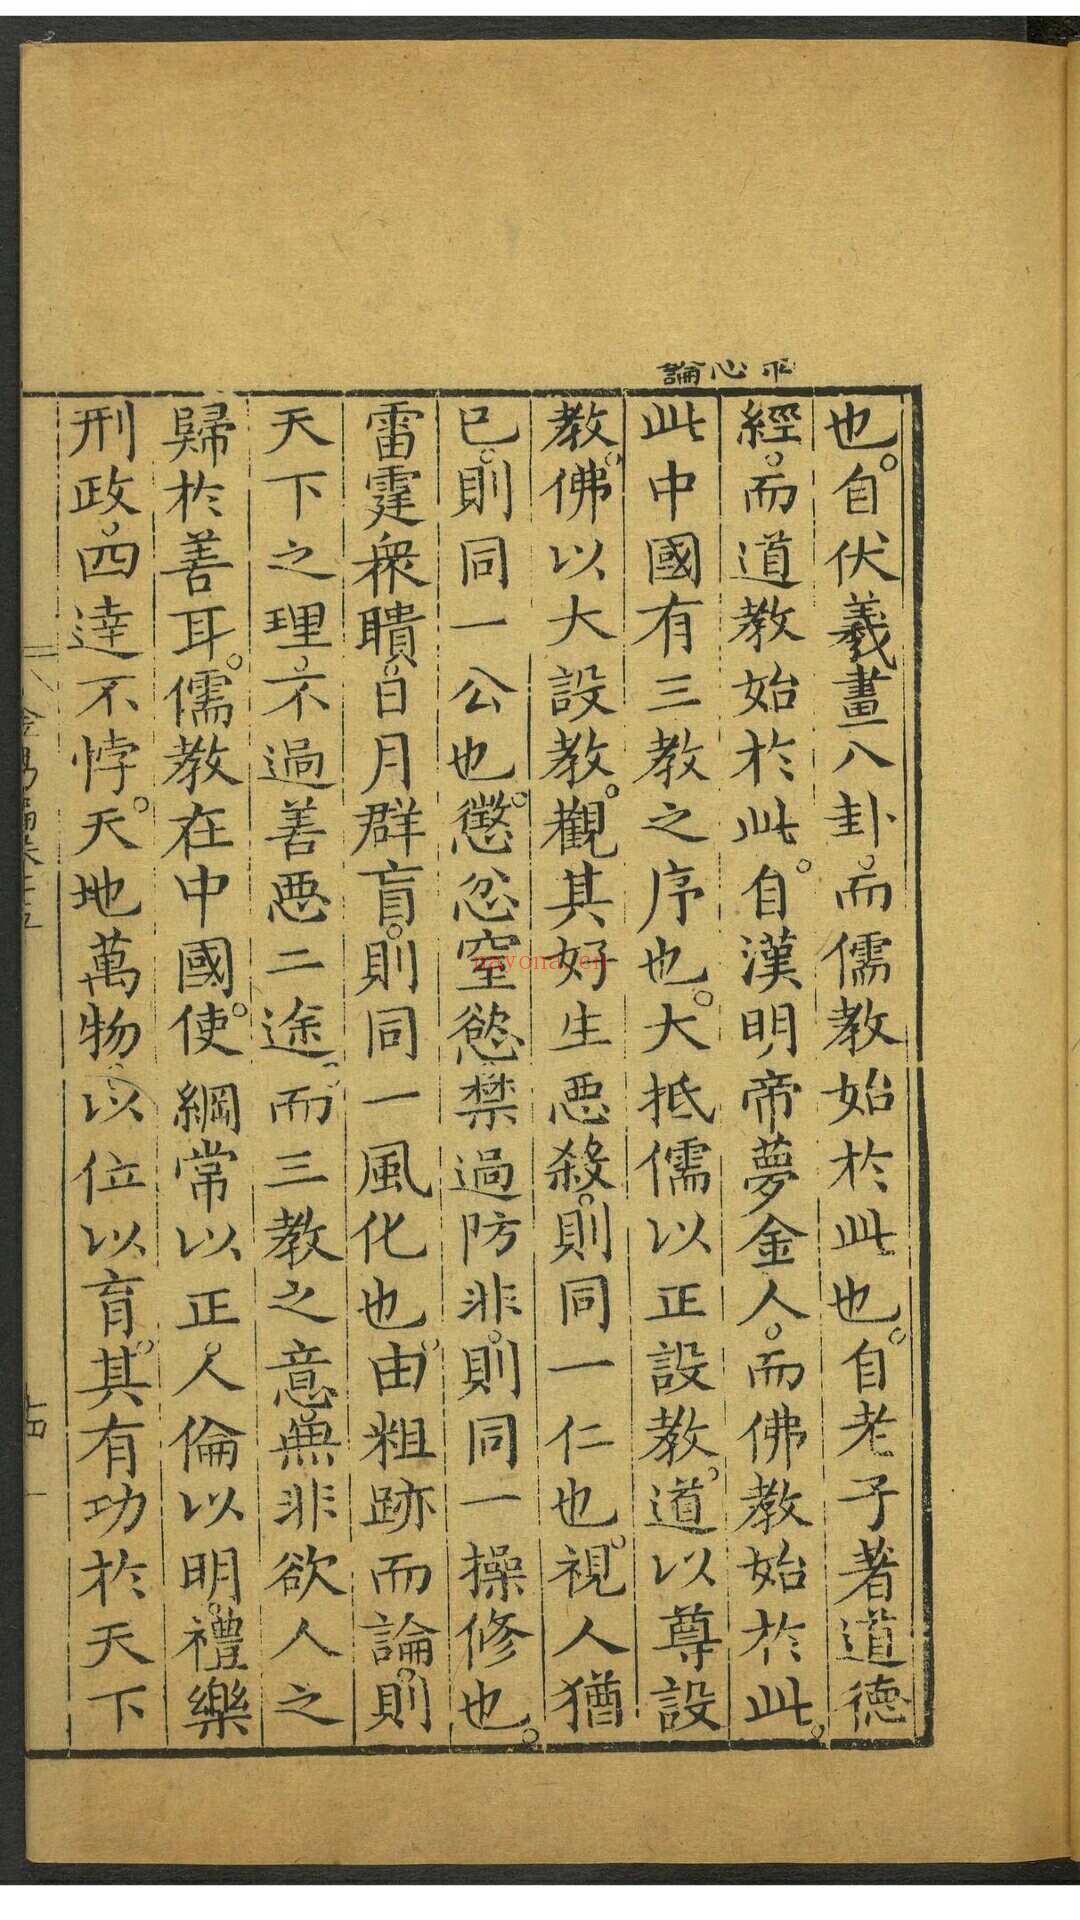 平心論
也。自伏羲畫八卦。而儒教始於此也。自老子著道德
經。而道教始於此。自漢明帝夢金人。而佛教始於此。
此中國有三教之序也。大抵儒以正設教。道以尊設
教。佛以大設教。觀其好生惡殺。則同一仁也。視人猶
己。則同一公也。懲忿窒慾。禁過防非。則同一操修也。
雷霆衆聵。日月群盲。則同一風化也。由粗跡而論。則
天下之理。不過善惡二途。而三教之意。無非欲人之
歸於善耳。儒教在中國。使綱常以正。人倫以明。禮樂
刑政。四達不悖。天地萬物。以位以育。其有功於天下